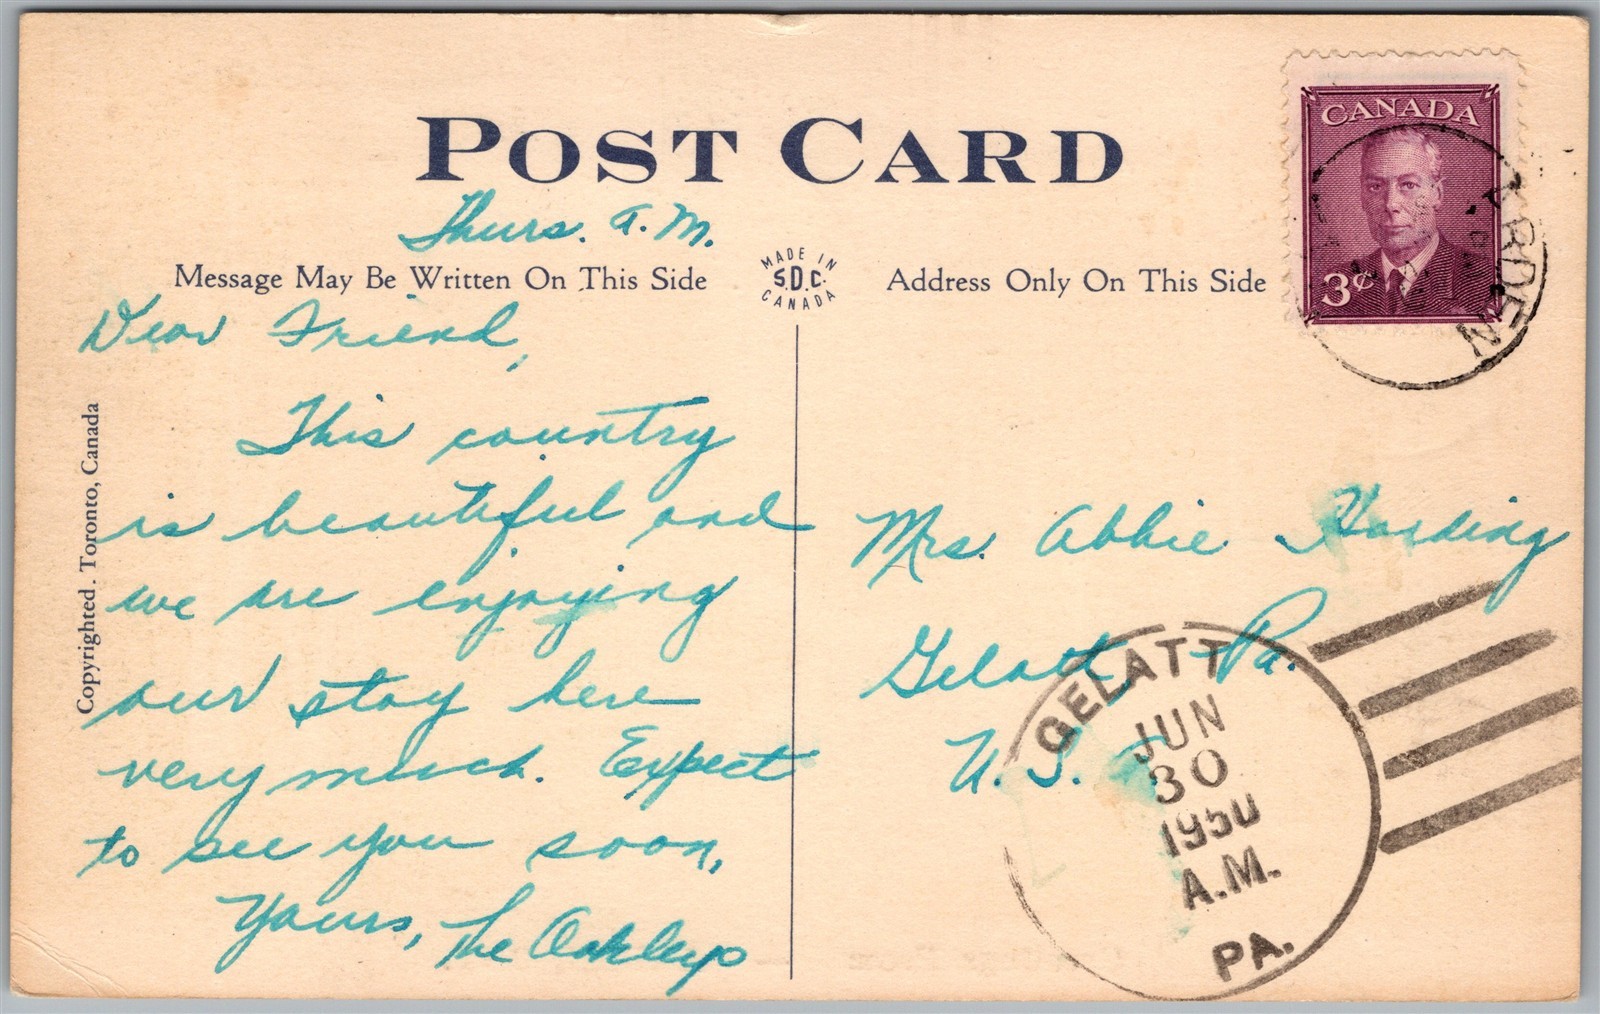 POST CARD
Thurs. A.M.
Message May Be Written On This Side
MADE IN
S.D.C.
CANADA
Address Only On This Side
CANADA
3¢
ARDEN
Dear Friend,
This country
is beautiful and
we are enjoying
our stay here
very much. Expect
to see you soon,
Yours, The Oakleys
Copyrighted. Toronto, Canada
Mrs. Abbie Harding
Gelatt Pa.
U. S. A
GELATT
JUN
30
1950
A.M.
PA.